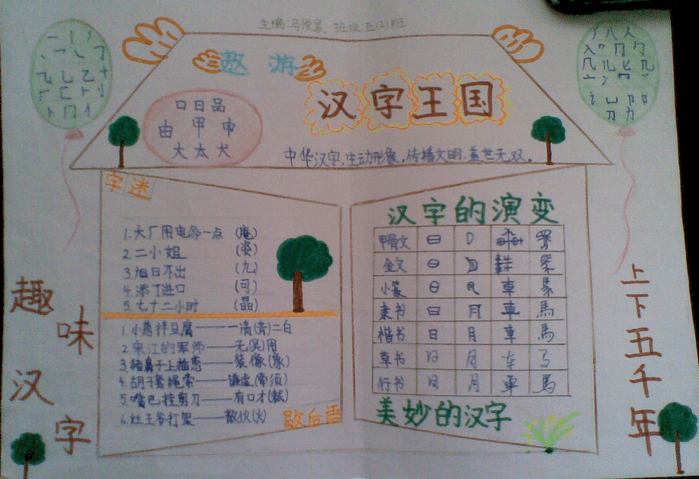 主编:马俊  班级:五(2)班
遨游
汉字王国
口日品
由甲申
大太犬
中华汉字,生动形象,传播文明,盖世无双。
字迷
1.大厂用电多一点 (庵)
2.二小姐 (姿)
3.旭日不出 (九)
4.添丁进口 (可)
5.七十二小时 (晶)
1.小葱拌豆腐——一清(青)二白
2.宋江的军师——无(吴)用
3.猪鼻子上插葱——装像(象)
4.胡子套绳索——谦虚(牵须)
5.嘴巴挂剪刀——有口才(裁)
6.灶王爷打架——散伙(火)
歇后语
汉字的演变
甲骨文
金文
小篆 車
隶书 日 月 車 馬
楷书 日 月 車 馬
草书 日 月
行书 日 月 車 馬
美妙的汉字
趣味汉字
上下五千年